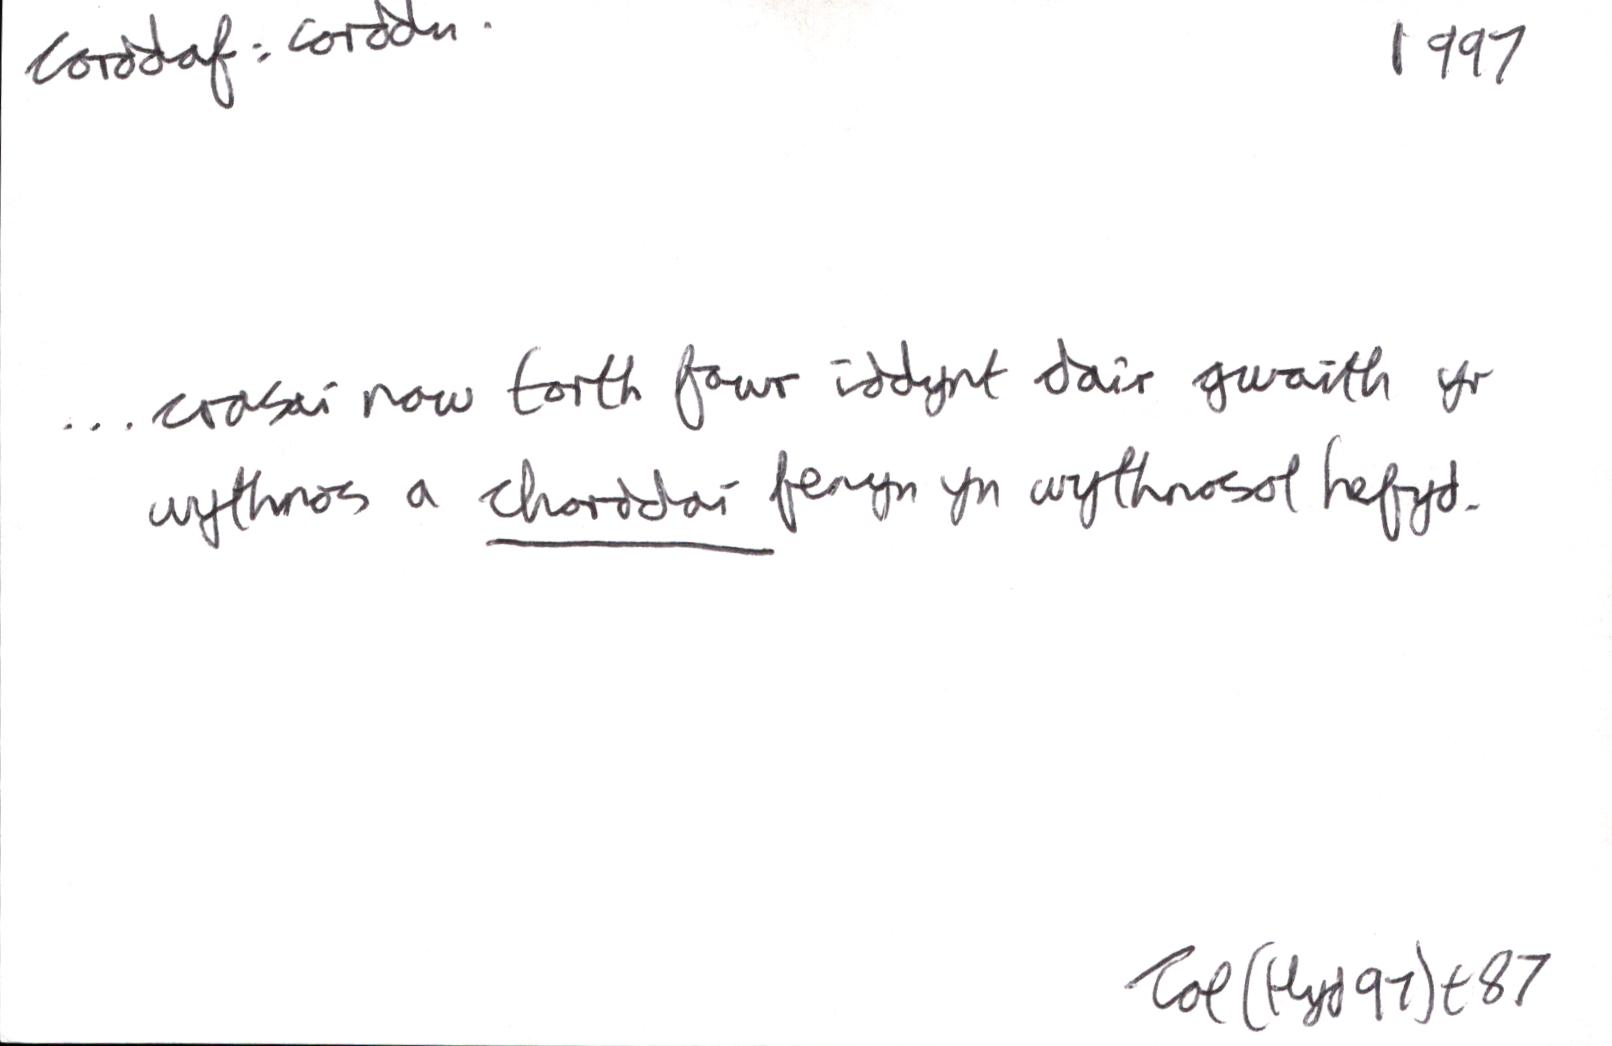 corddaf: corddu. 1997
... crasai naw torth fawr iddynt dair gwaith yr
wythnos a chorddai fenyn yn wythnosol hefyd.
(Hyd 97) t 87